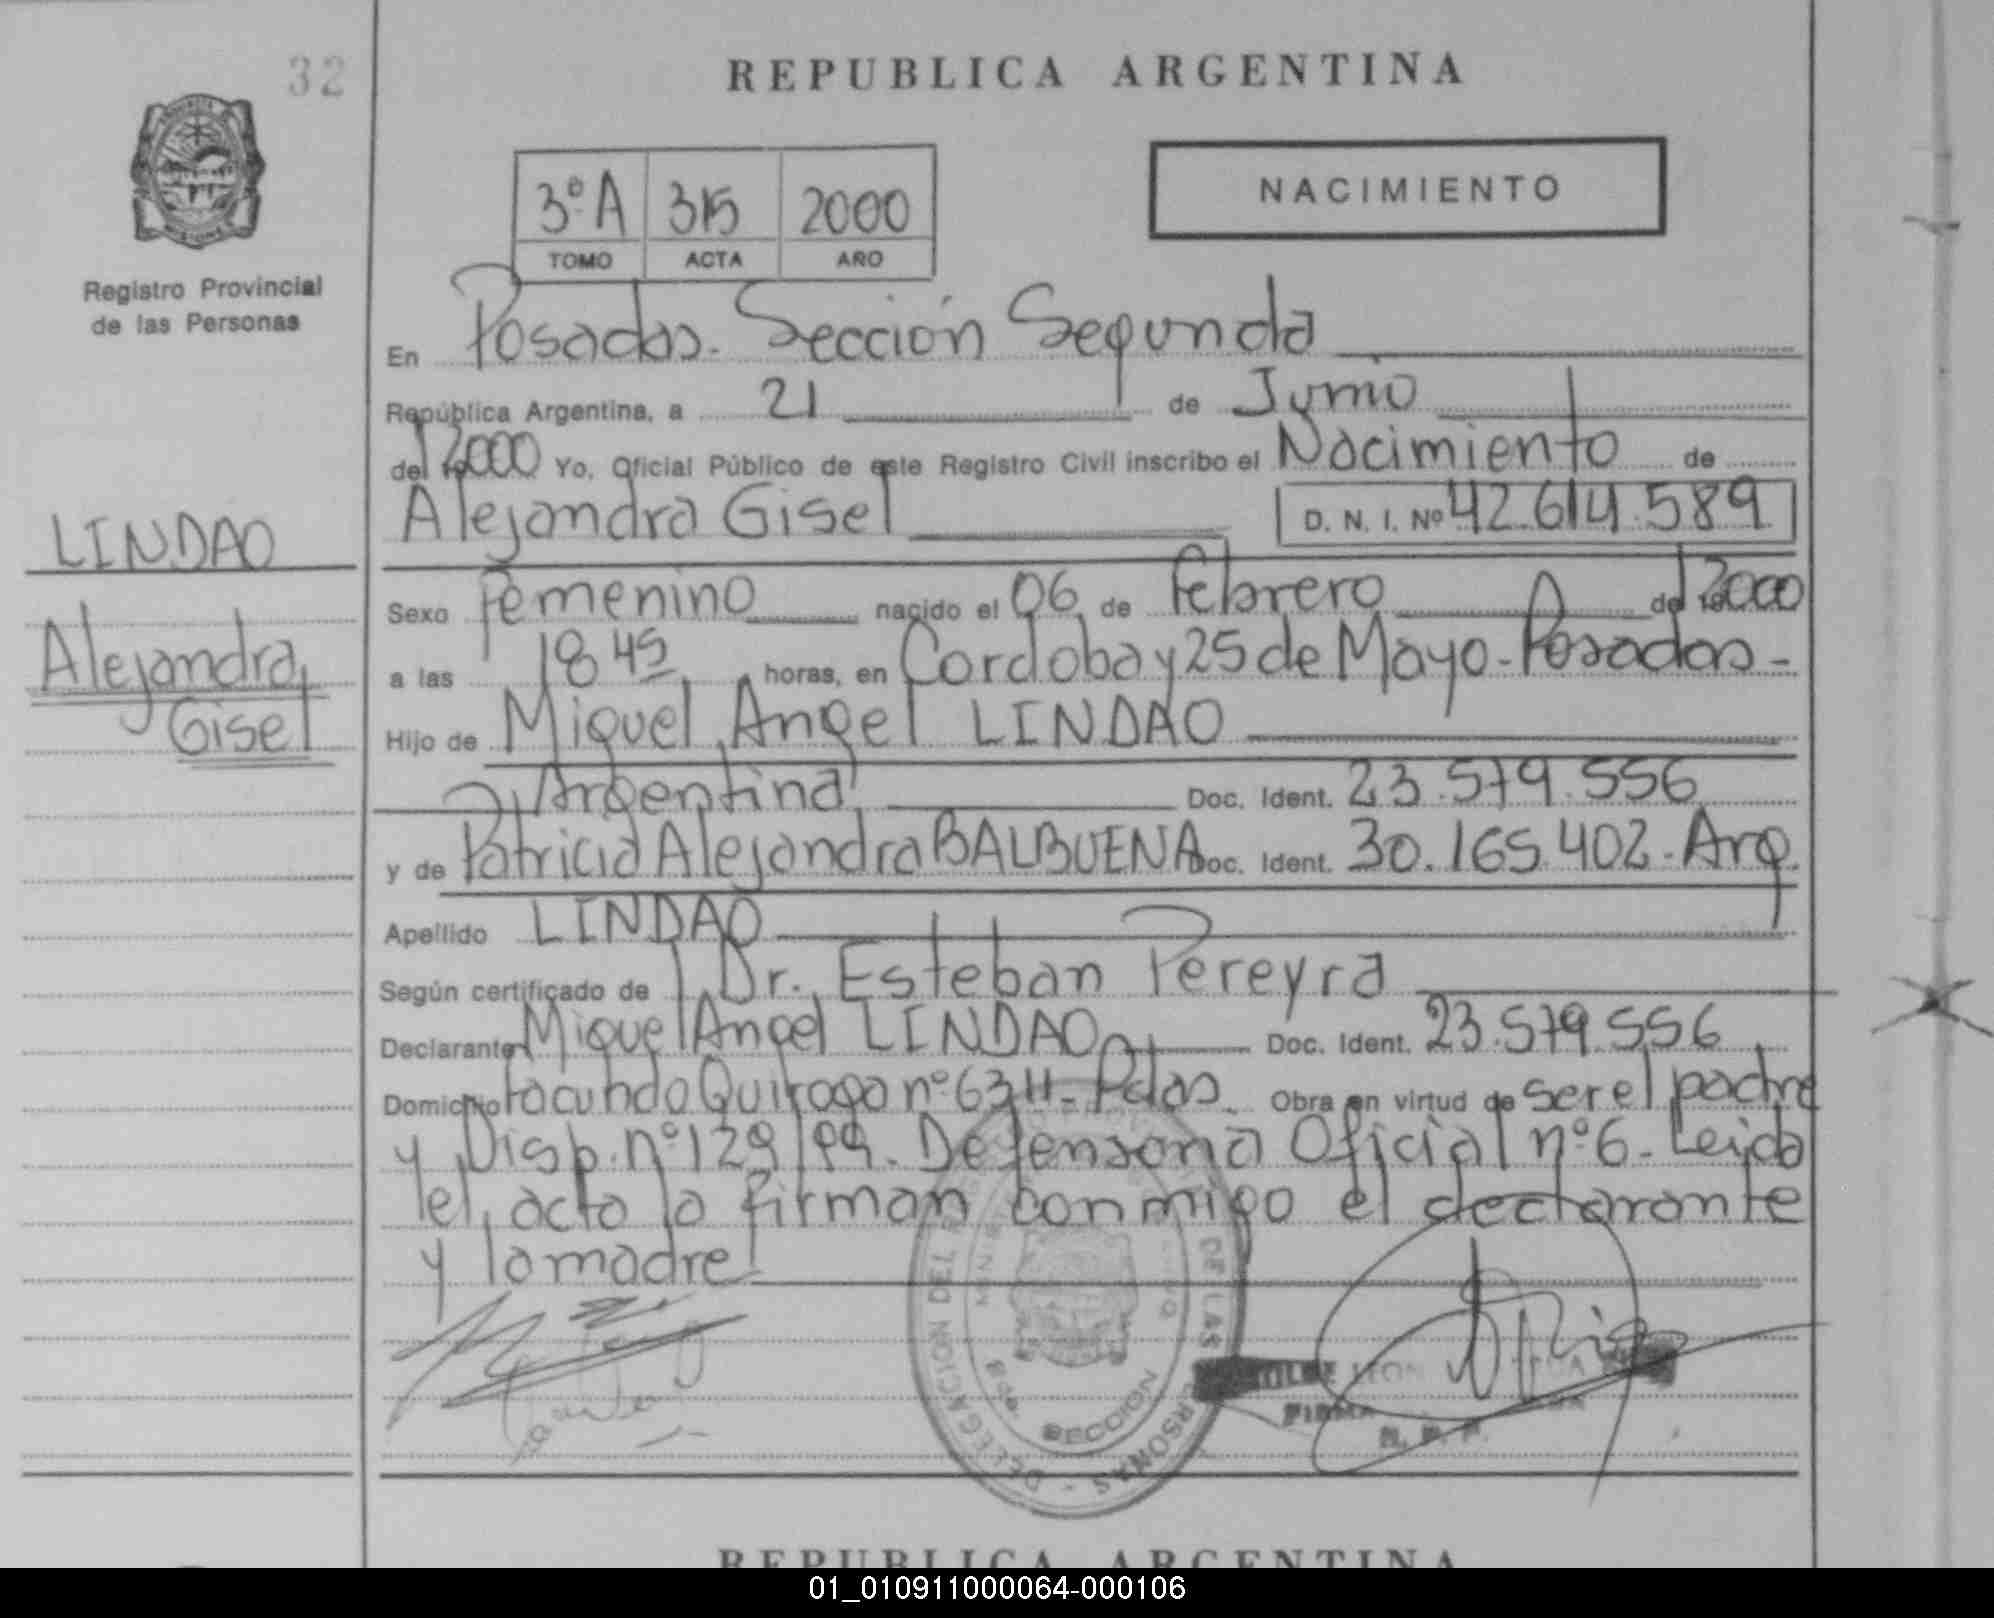 32
REPUBLICA ARGENTINA
NACIMIENTO
3º A 315 2000
TOMO ACTA AÑO
Registro Provincial
de las Personas
En Posadas. Sección Segunda
República Argentina, a 21 de Junio
del 2000 Yo, Oficial Público de este Registro Civil inscribo el Nacimiento de
Alejandra Gisel D. N. I. Nº 42.614.589
LINDAO
Alejandra
Gisel
Sexo femenino nacido el 06 de febrero del 2000
a las 18 45 horas, en Cordoba y 25 de Mayo - Posadas -
Hijo de Miguel Angel LINDAO
Argentina Doc. Ident. 23.579.556
y de Patricia Alejandra BALBUENA Doc. Ident. 30.165.402 - Arg.
Apellido LINDAO
Según certificado de Dr. Esteban Pereyra
Declarante Miguel Angel LINDAO Doc. Ident. 23.579.556
Domicilio Facundo Quiroga nº 6311 - Pdas. Obra en virtud de ser el padre
y Disp. nº 129/99. Defensoria Oficial nº 6 - Leida
el acto lo firman conmigo el declarante
y la madre
DELEGACION DEL DE LAS PERSONAS
SECCION
FIRMA
REPUBLICA ARGENTINA
01_010911000064-000106